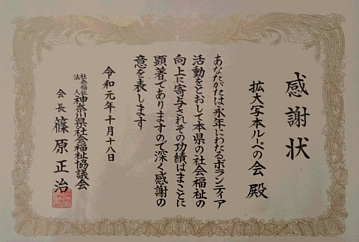 感謝状
拡大写本ルペの会 殿
あなたがたは永年にわたるボランティア
活動をとおして本県の社会福祉の
向上に寄与されその功績はまことに
顕著でありますので深く感謝の
意を表します
令和元年十月十八日
社会福祉法人 神奈川県社会福祉協議会
会長 篠原正治